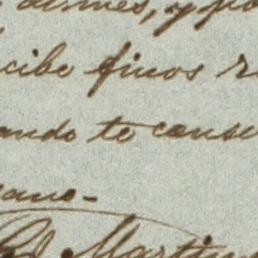 y po
cibe finos r
ando te conse
ano-
Martin